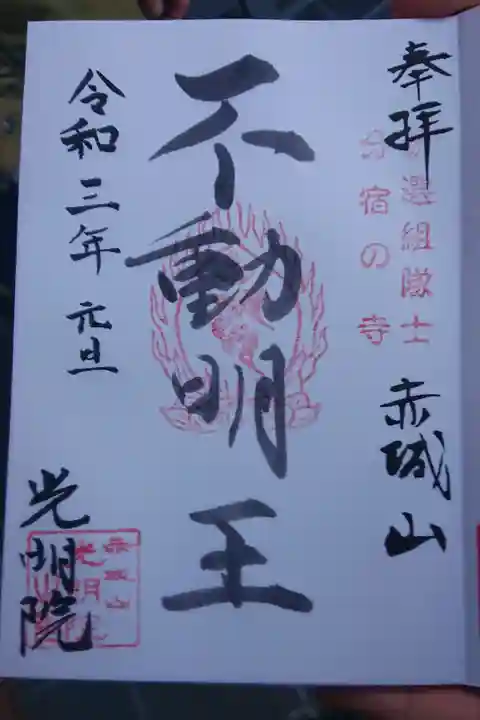 奉拝
新選組隊士
分宿の寺
赤城山
不動明王
令和三年 元旦
光明院
赤城山
光明院